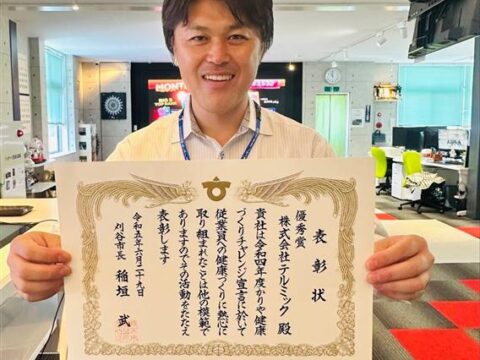 表彰状
優秀賞
株式会社テルミック 殿
貴社は令和四年度かりや健康
づくりチャレンジ宣言に於いて
従業員の健康づくりに熱心に
取り組まれたことは他の模範で
ありますのでその活動をたたえ
表彰します
令和五年六月二十九日
刈谷市長 稲垣 武
MONTH